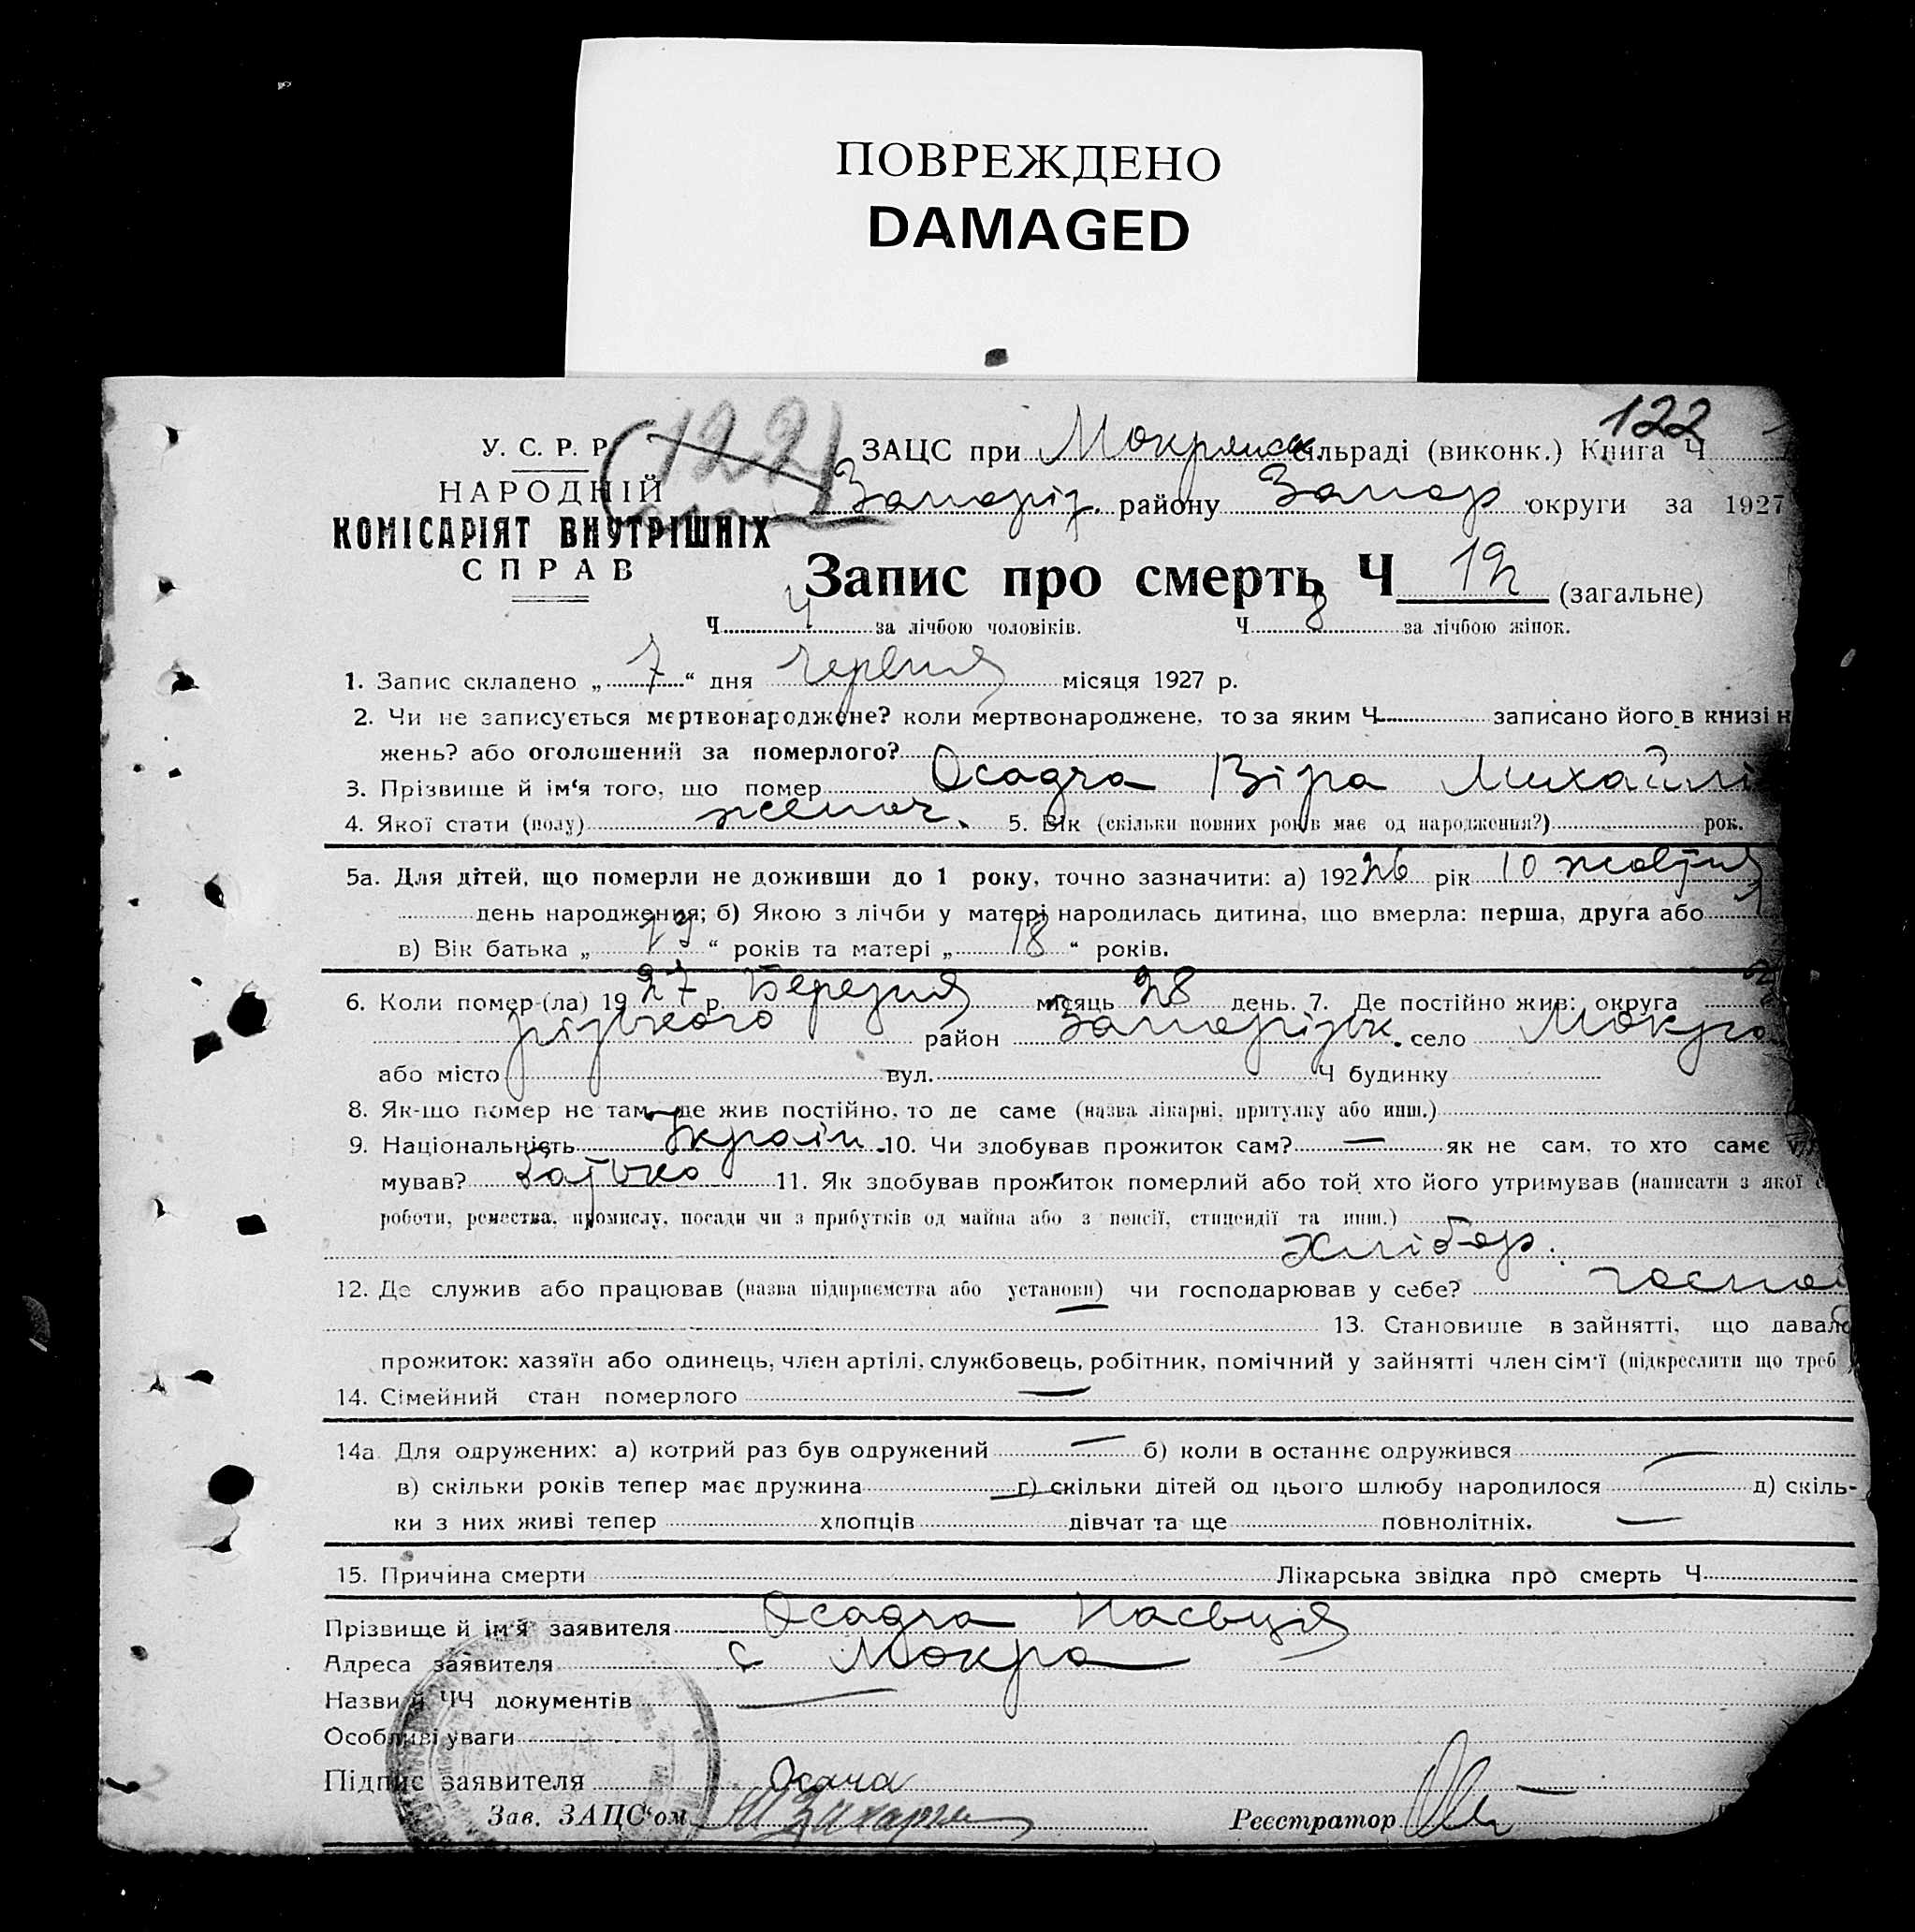 ПОВРЕЖДЕНО
DAMAGED
122
У. С. Р. Р.
(122)
ЗАЦС при Мокрянск сільраді (виконк.) Книга Ч
НАРОДНІЙ
Запоріз. району Запор округи за 1927
КОМІСАРІЯТ ВНУТРІШНІХ
СПРАВ
Запис про смерть Ч 12 (загальне)
Ч 4 за лічбою чоловіків. Ч 8 за лічбою жінок.
1. Запис складено „ 7 “ дня червня місяця 1927 р.
2. Чи не записується мертвонароджене? коли мертвонароджене, то за яким Ч записано його в книзі н
жень? або оголошений за померлого?
3. Прізвище й ім‘я того, що помер Осадча Віра Михайлі
4. Якої стати (полу) жіноч. 5. Вік (скільки повних років має од народження?) рок.
5а. Для дітей, що померли не доживши до 1 року, точно зазначити: а) 192 26 рік 10 жовтня
день народження; б) Якою з лічби у матері народилась дитина, що вмерла: перша, друга або 1
в) Вік батька „ 19 “ років та матері „ 18 “ років.
6. Коли помер (ла) 19 27 р. Березня місяць 28 день. 7. Де постійно жив: округа
різького район Запорізьк. село Мокра
або місто вул. Ч будинку
8. Як-що помер не там, де жив постійно, то де саме (назва лікарні, притулку або инш.)
9. Національність Україн. 10. Чи здобував прожиток сам? — як не сам, то хто саме
мував? батько 11. Як здобував прожиток померлий або той хто його утримував (написати з якої
роботи, ремества, промислу, посади чи з прибутків од майна або з пенсії, стипендії та инш.)
хлібор.
12. Де служив або працював (назва підприємства або установи) чи господарював у себе? госпо
— 13. Становище в зайнятті, що давало
прожиток: хазяїн або одинець, член артілі, службовець, робітник, помічний у зайнятті член сім‘ї (підкреслити що треб
14. Сімейний стан померлого —
14а. Для одружених: а) котрий раз був одружений — б) коли в останнє одружився —
в) скільки років тепер має дружина — г) скільки дітей од цього шлюбу народилося — д) скіль-
ки з них живі тепер хлопців дівчат та ще повнолітніх. —
15. Причина смерти Лікарська звідка про смерть Ч
Прізвище й ім‘я заявителя Осадча
Адреса заявителя с Мокра
Назви й ЧЧ документів —
Особливі уваги
Підпис заявителя Осача
Зав. ЗАЦС‘ом Реєстратор